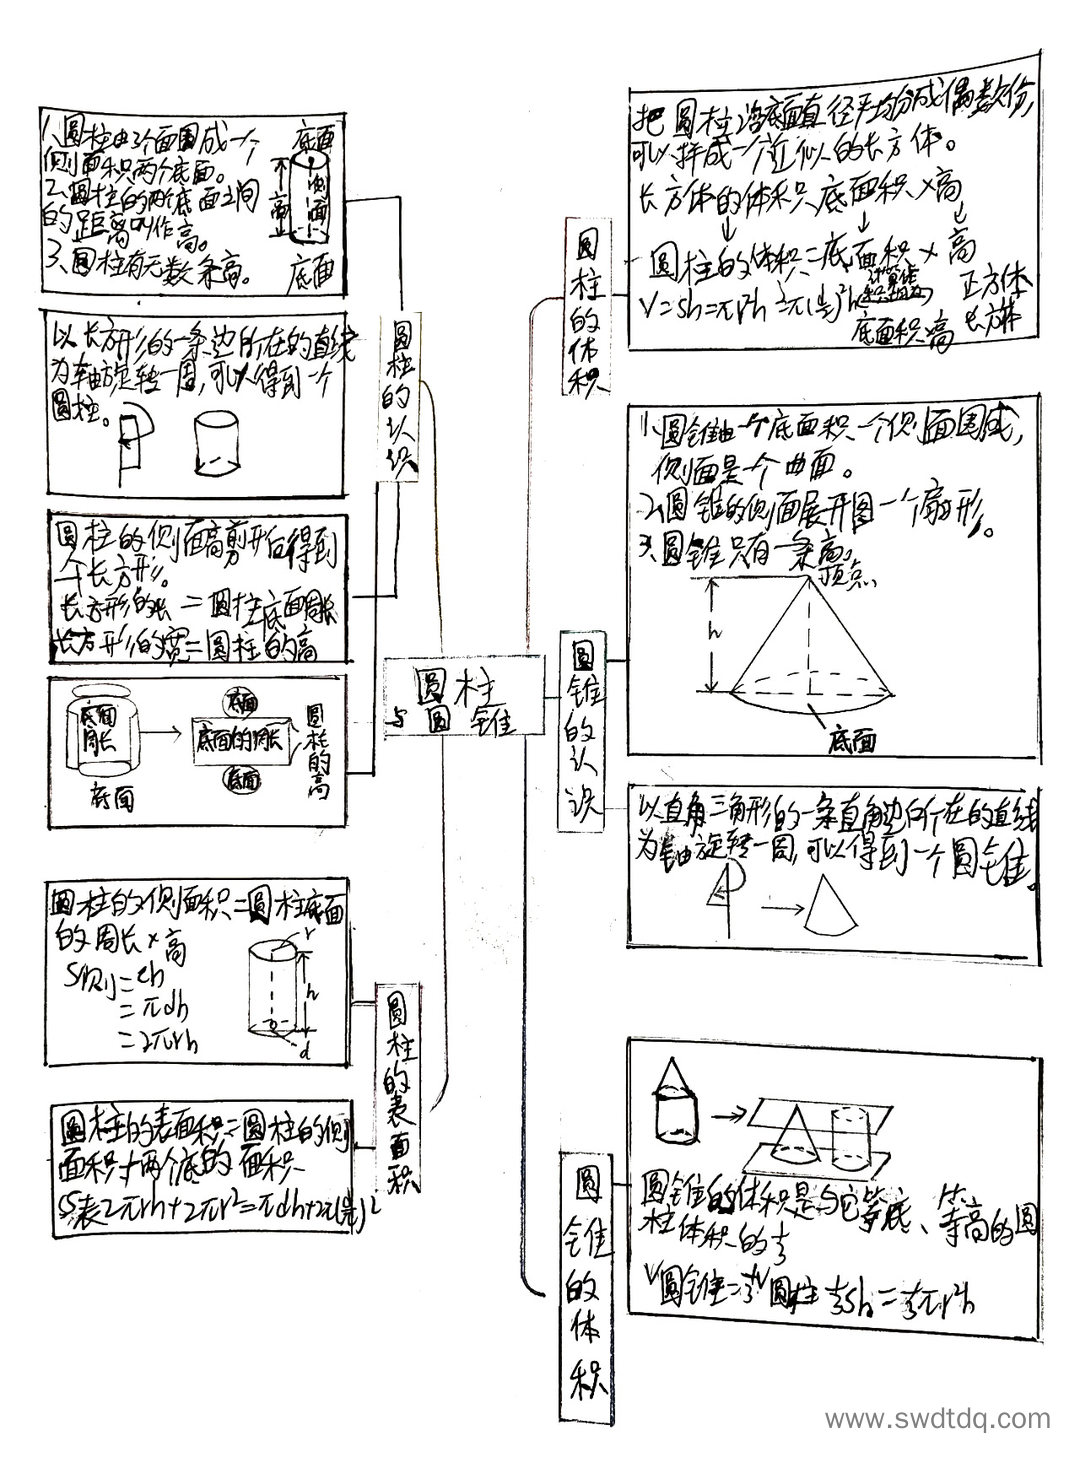 1、圆柱由3个面围成一个
侧面积两个底面。
2、圆柱的两个底面之间
的距离叫作高。
3、圆柱有无数条高。
底面
高
侧面
底面
以长方形的一条边所在的直线
为轴旋转一周,可以得到一个
圆柱。
圆柱的侧面高剪开后得到
个长方形。
长方形的长=圆柱底面周长
长方形的宽=圆柱的高
底面
周长
底面
底面
底面的周长
底面
圆柱的高
圆柱的认识
圆柱的侧面积=圆柱底面
的周长×高
S侧=ch
=πdh
=2πrh
r
h
d
圆柱的表面积=圆柱的侧
面积+两个底的面积
S表2πrh+2πr²=πdh+2π()²
圆柱的表面积
圆柱
与圆锥
把圆柱沿底面直径平均分成偶数份,
可以拼成一个近似的长方体。
长方体的体积=底面积×高
圆柱的体积=底面积×高
V=sh=πr²h
正方体
长方体
底面积×高
圆柱的体积
1、圆锥由一个底面积、一个侧面围成,
侧面是一个曲面。
2、圆锥的侧面展开图一个扇形。
3、圆锥只有一条高。
顶点
h
底面
以直角三角形的一条直角边所在的直线
为轴旋转一周,可以得到一个圆锥。
圆锥的认识
圆锥的体积是与它等底、等高的圆
柱体积的⅓
V圆锥=⅓V圆柱⅓Sh=⅓πr²h
圆锥的体积
www.swdtdq.com